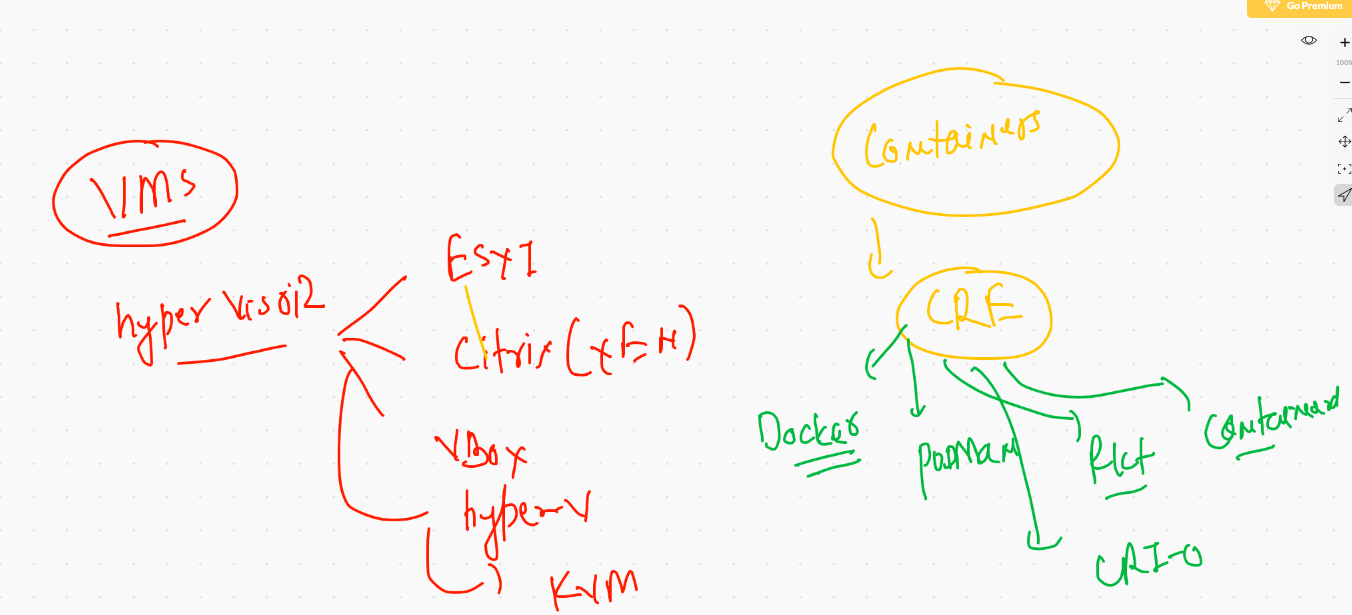 Go Premium
100%
VMs
hyper visoi2
Esxi
Citrix (XEN)
VBox
hyper-V
KVM
Containers
CRE
Docker
podman
Rkt
Containerd
CRI-O